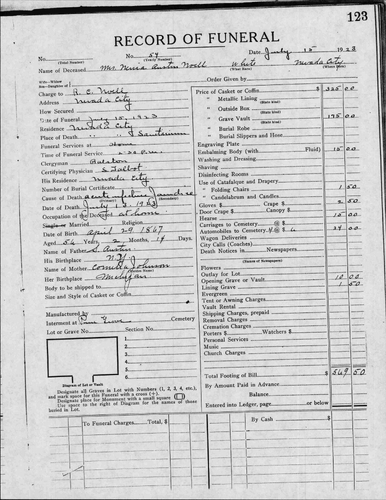 123
RECORD OF FUNERAL
No. No. 54 Date July 15 1923
(Total Number) (Yearly Number)
Name of Deceased Mrs. Austin Noell White Nevada City
(What Race) (Where Born)
Charge to R. C. Noell
Address Nevada City
How Secured
Date of Funeral July 15, 1923
Residence Nevada City
Place of Death
Funeral Services at Home
Time of Funeral Service
Clergyman
Certifying Physician
His Residence Nevada City
Number of Burial Certificate
Cause of Death acute Jaundice
Date of Death July 13, 1923
Occupation of the Deceased at home
Single or Married Religion
Date of Birth April 29 1867
Aged 56 Years 2 Months 14 Days
Name of Father S. Austin
His Birthplace N.Y.
Name of Mother Johnson
(Maiden Name)
Her Birthplace Michigan
Body to be shipped to
Size and Style of Casket or Coffin
Manufactured by
Interment at Cemetery
Lot or Grave No. Section No.
1.
2.
3.
4.
5.
6.
Diagram of Lot or Vault
Designate all Graves in Lot with Numbers (1, 2, 3, 4, etc.), and mark space for this Funeral with a cross (+).
Designate place for Monument with a small square
Use space to the right of Diagram for the names of those buried in Lot.
Order given by
Price of Casket or Coffin $ 325 00
" Metallic Lining
(State kind)
" Outside Box
(State kind)
" Grave Vault 175 00
(State kind)
" Burial Robe
(State kind)
" Burial Slippers and Hose
Engraving Plate
Embalming Body (with Fluid) 15 00
Washing and Dressing
Shaving
Disinfecting Rooms
Use of Catafalque and Drapery
" Folding Chairs 1 50
" Candelabrum and Candles
Gloves $ Crape $ 2 50
Door Crape $ Canopy $
Hearse 15 00
Carriages to Cemetery
Automobiles to Cemetery 24 00
Wagon Deliveries
City Calls (Coaches)
Death Notices in Newspapers
(Names of Newspapers)
Flowers
Outlay for Lot
Opening Grave or Vault 10 00
Lining Grave 1 50
Evergreen
Tent or Awning Charges
Vault Rental
Shipping Charges, prepaid
Removal Charges
Cremation Charges
Porters $ Watchers $
Personal Services
Music
Church Charges
Total Footing of Bill $ 569 50
By Amount Paid in Advance
Balance
Entered into Ledger, page or below.
To Funeral Charges Total, $ By Cash $